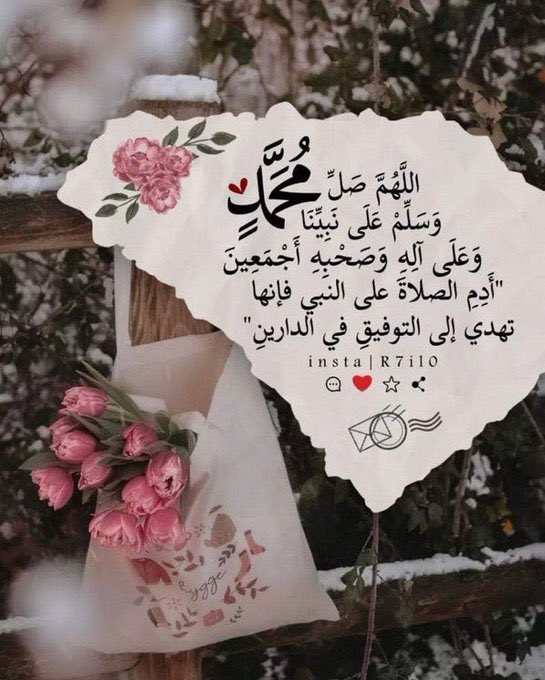 اللَّهُمَّ صَلِّ
وَسَلِّمْ عَلَى نَبِيِّنَا مُحَمَّدٍ
وَعَلَى آلِهِ وَصَحْبِهِ أَجْمَعِينَ
"أَدِمِ الصلاةَ على النبي فإنها
تهدي إلى التوفيقِ في الدارينِ"
insta|R7il0
hygge